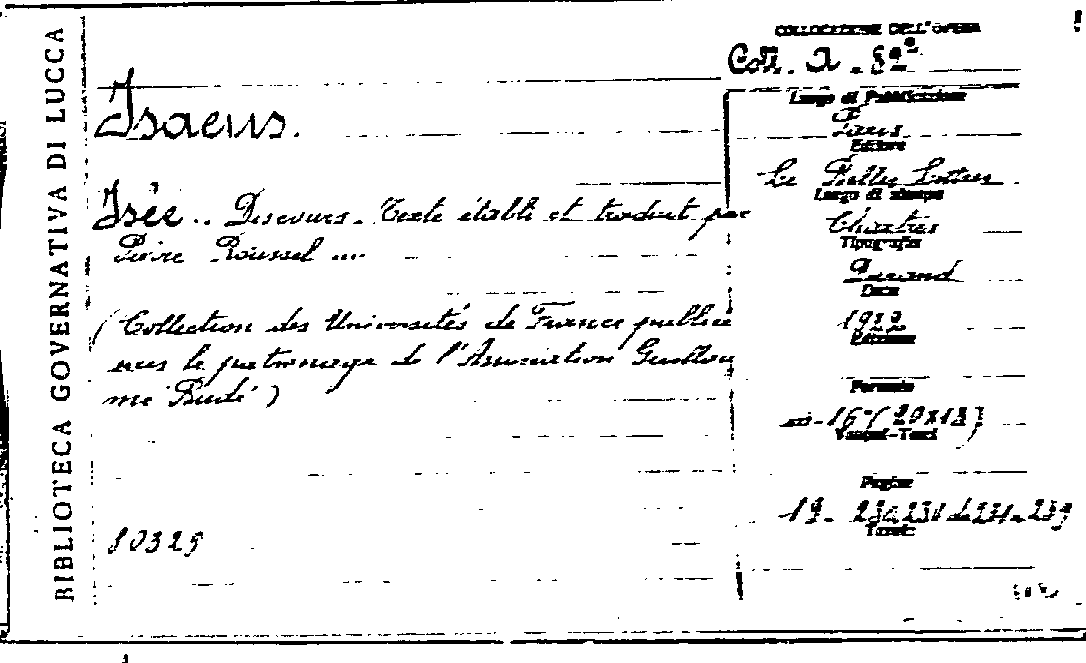 BIBLIOTECA GOVERNATIVA DI LUCCA
Isaeus.
Isée.. Discours. Texte établi et traduit par
Pierre Roussel ...
(Collection des Universités de France publiée
sous le patronage de l'Association Guillau
me Budé)
80329
COLLOCAZIONE DELL'OPERA
Coll. A. 82
Luogo di Pubblicazione
Paris
Editore
Les Belles Lettres
Luogo di stampa
Chartres
Tipografia
Durand
Data
1922
Edizione
Formato
in-16-(20x13)
Volumi-Tomi
Pagine
19-
Tavole